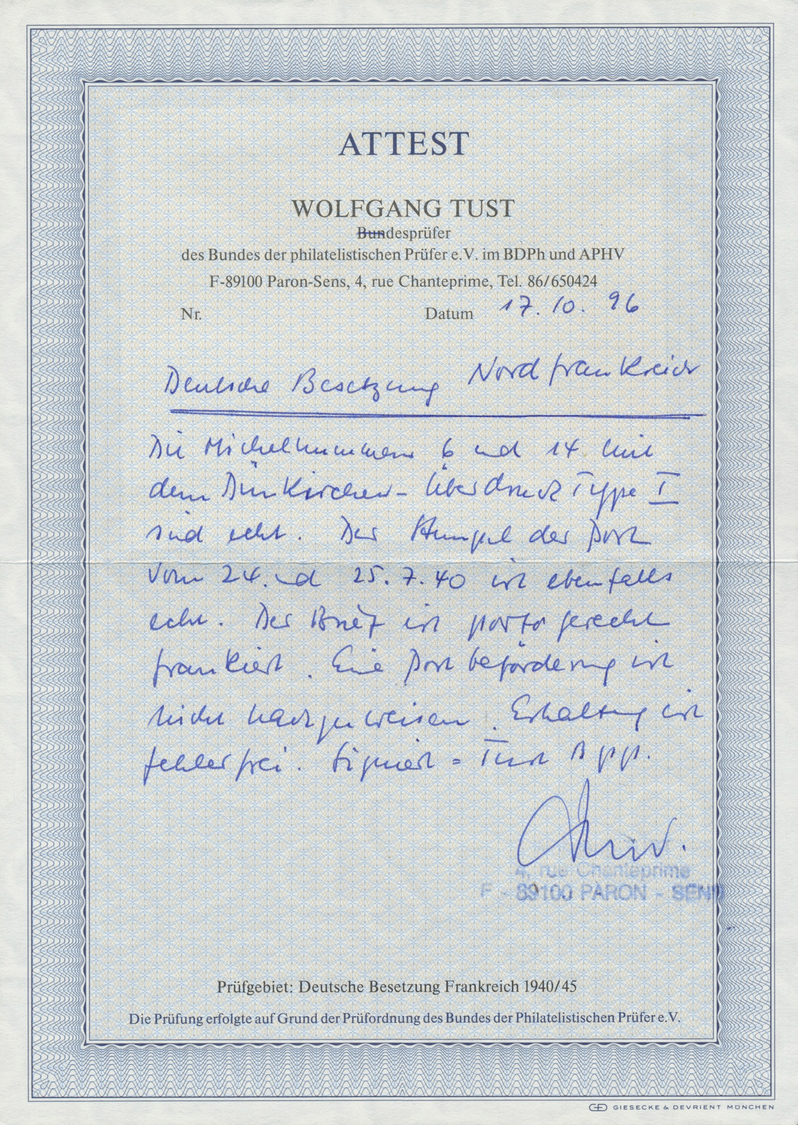 ATTEST
WOLFGANG TUST
Bundesprüfer
des Bundes der philatelistischen Prüfer e.V. im BDPh und APHV
F-89100 Paron-Sens, 4, rue Chanteprime, Tel. 86/650424
Nr. Datum 17.10.96
Deutsche Besetzung Nordfrankreich
Die Michelnummern 6 und 14 mit
dem Dünkirchen-Überdruck Type I
sind echt. Der Stempel der Post
vom 24. und 25.7.40 ist ebenfalls
echt. Der Brief ist portogerecht
frankiert. Eine Postbeförderung ist
nicht nachzuweisen. Erhaltung ist
fehlerfrei. Signiert = Tust Bpp.
4, rue Chanteprime
F - 89100 PARON - SENS
Prüfgebiet: Deutsche Besetzung Frankreich 1940/45
Die Prüfung erfolgte auf Grund der Prüfordnung des Bundes der Philatelistischen Prüfer e.V.
GD GIESECKE & DEVRIENT MÜNCHEN